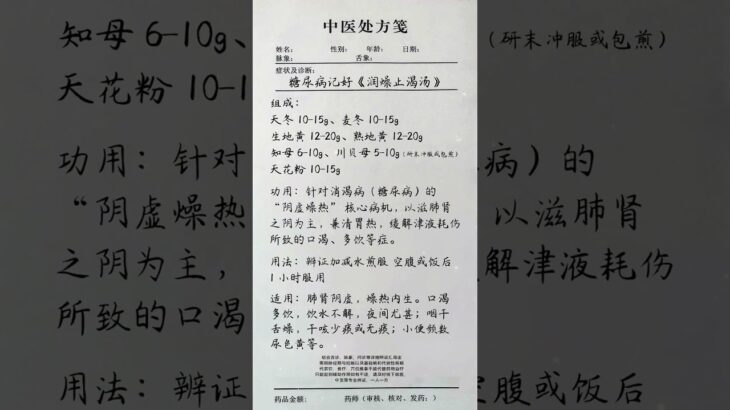 知母 6-10g、
天花粉 10-1
功用：针
“阴虚燥热
之阴为主，
所致的口渴
用法：辨证
中医处方笺
姓名： 性别： 年龄： 日期：
脉象： 舌象：
症状及诊断：
糖尿病记好《润燥止渴汤》
组成：
天冬 10-15g、麦冬 10-15g
生地黄 12-20g、熟地黄 12-20g
知母 6-10g、川贝母 5-10g（研末冲服或包煎）
天花粉 10-15g
功用：针对消渴病（糖尿病）的
“阴虚燥热”核心病机，以滋肺肾
之阴为主，兼清胃热，缓解津液耗伤
所致的口渴、多饮等症。
用法：辨证加减水煎服 空腹或饭后
1小时服用
适用：肺肾阴虚，燥热内生。口渴
多饮，饮水不解，夜间尤甚；咽干
舌燥，干咳少痰或无痰；小便频数
尿色黄等。
药品金额： 药师（审核、核对、发药：）
（研末冲服或包煎）
病）的
以滋肺肾
解津液耗伤
空腹或饭后